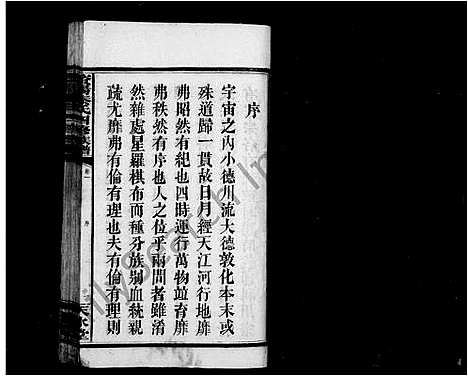 序
宇宙之內小德川流大德敦化本末或
殊道歸一貫故日月經天江河行地靡
弗昭然有紀也四時運行萬物竝育靡
弗秩然有序也人之位乎兩間者雖淆
然雜處星羅棋布而種分族別血統親
疏尤靡弗有倫有理也夫有倫有理則
卷一
序